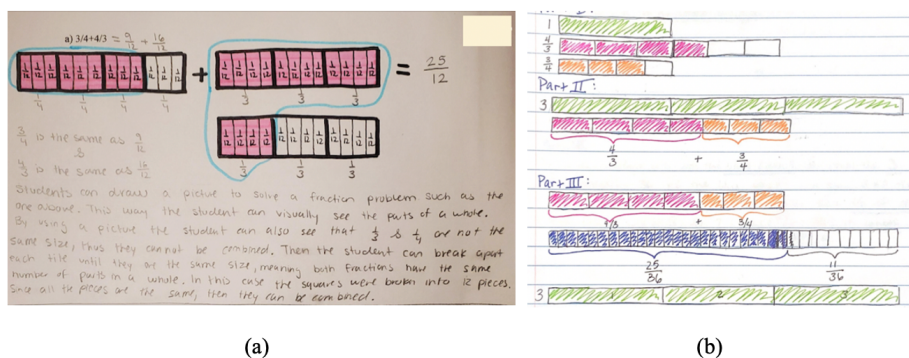 a) 3/4+4/3 = 9/12 + 16/12
+ = 25/12
1/4 1/4 1/4 1/4
1/3 1/3 1/3
1/3 1/3 1/3
3/4 is the same as 9/12
4/3 is the same as 16/12
Students can draw a picture to solve a fraction problem such as the
one above. This way the student can visually see the parts of a whole.
By using a picture the student can also see that 1/3 & 1/4 are not the
same size, thus they cannot be combined. Then the student can break apart
each tile until they are the same size, meaning both fractions have the same
number of parts in a whole. In this case the squares were broken into 12 pieces.
Since all the pieces are the same, then they can be combined.
(a)
1
4/3
3/4
Part II:
3
4/3 + 3/4
Part III:
4/3 + 3/4
25/36 11/36
3 1 2 3
(b)